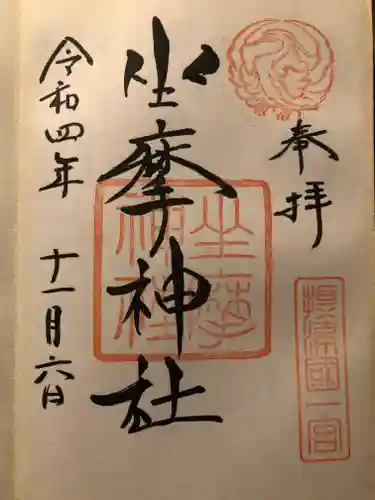 奉拝
摂津國一宮
坐摩神社
坐摩神社
令和四年 十一月六日